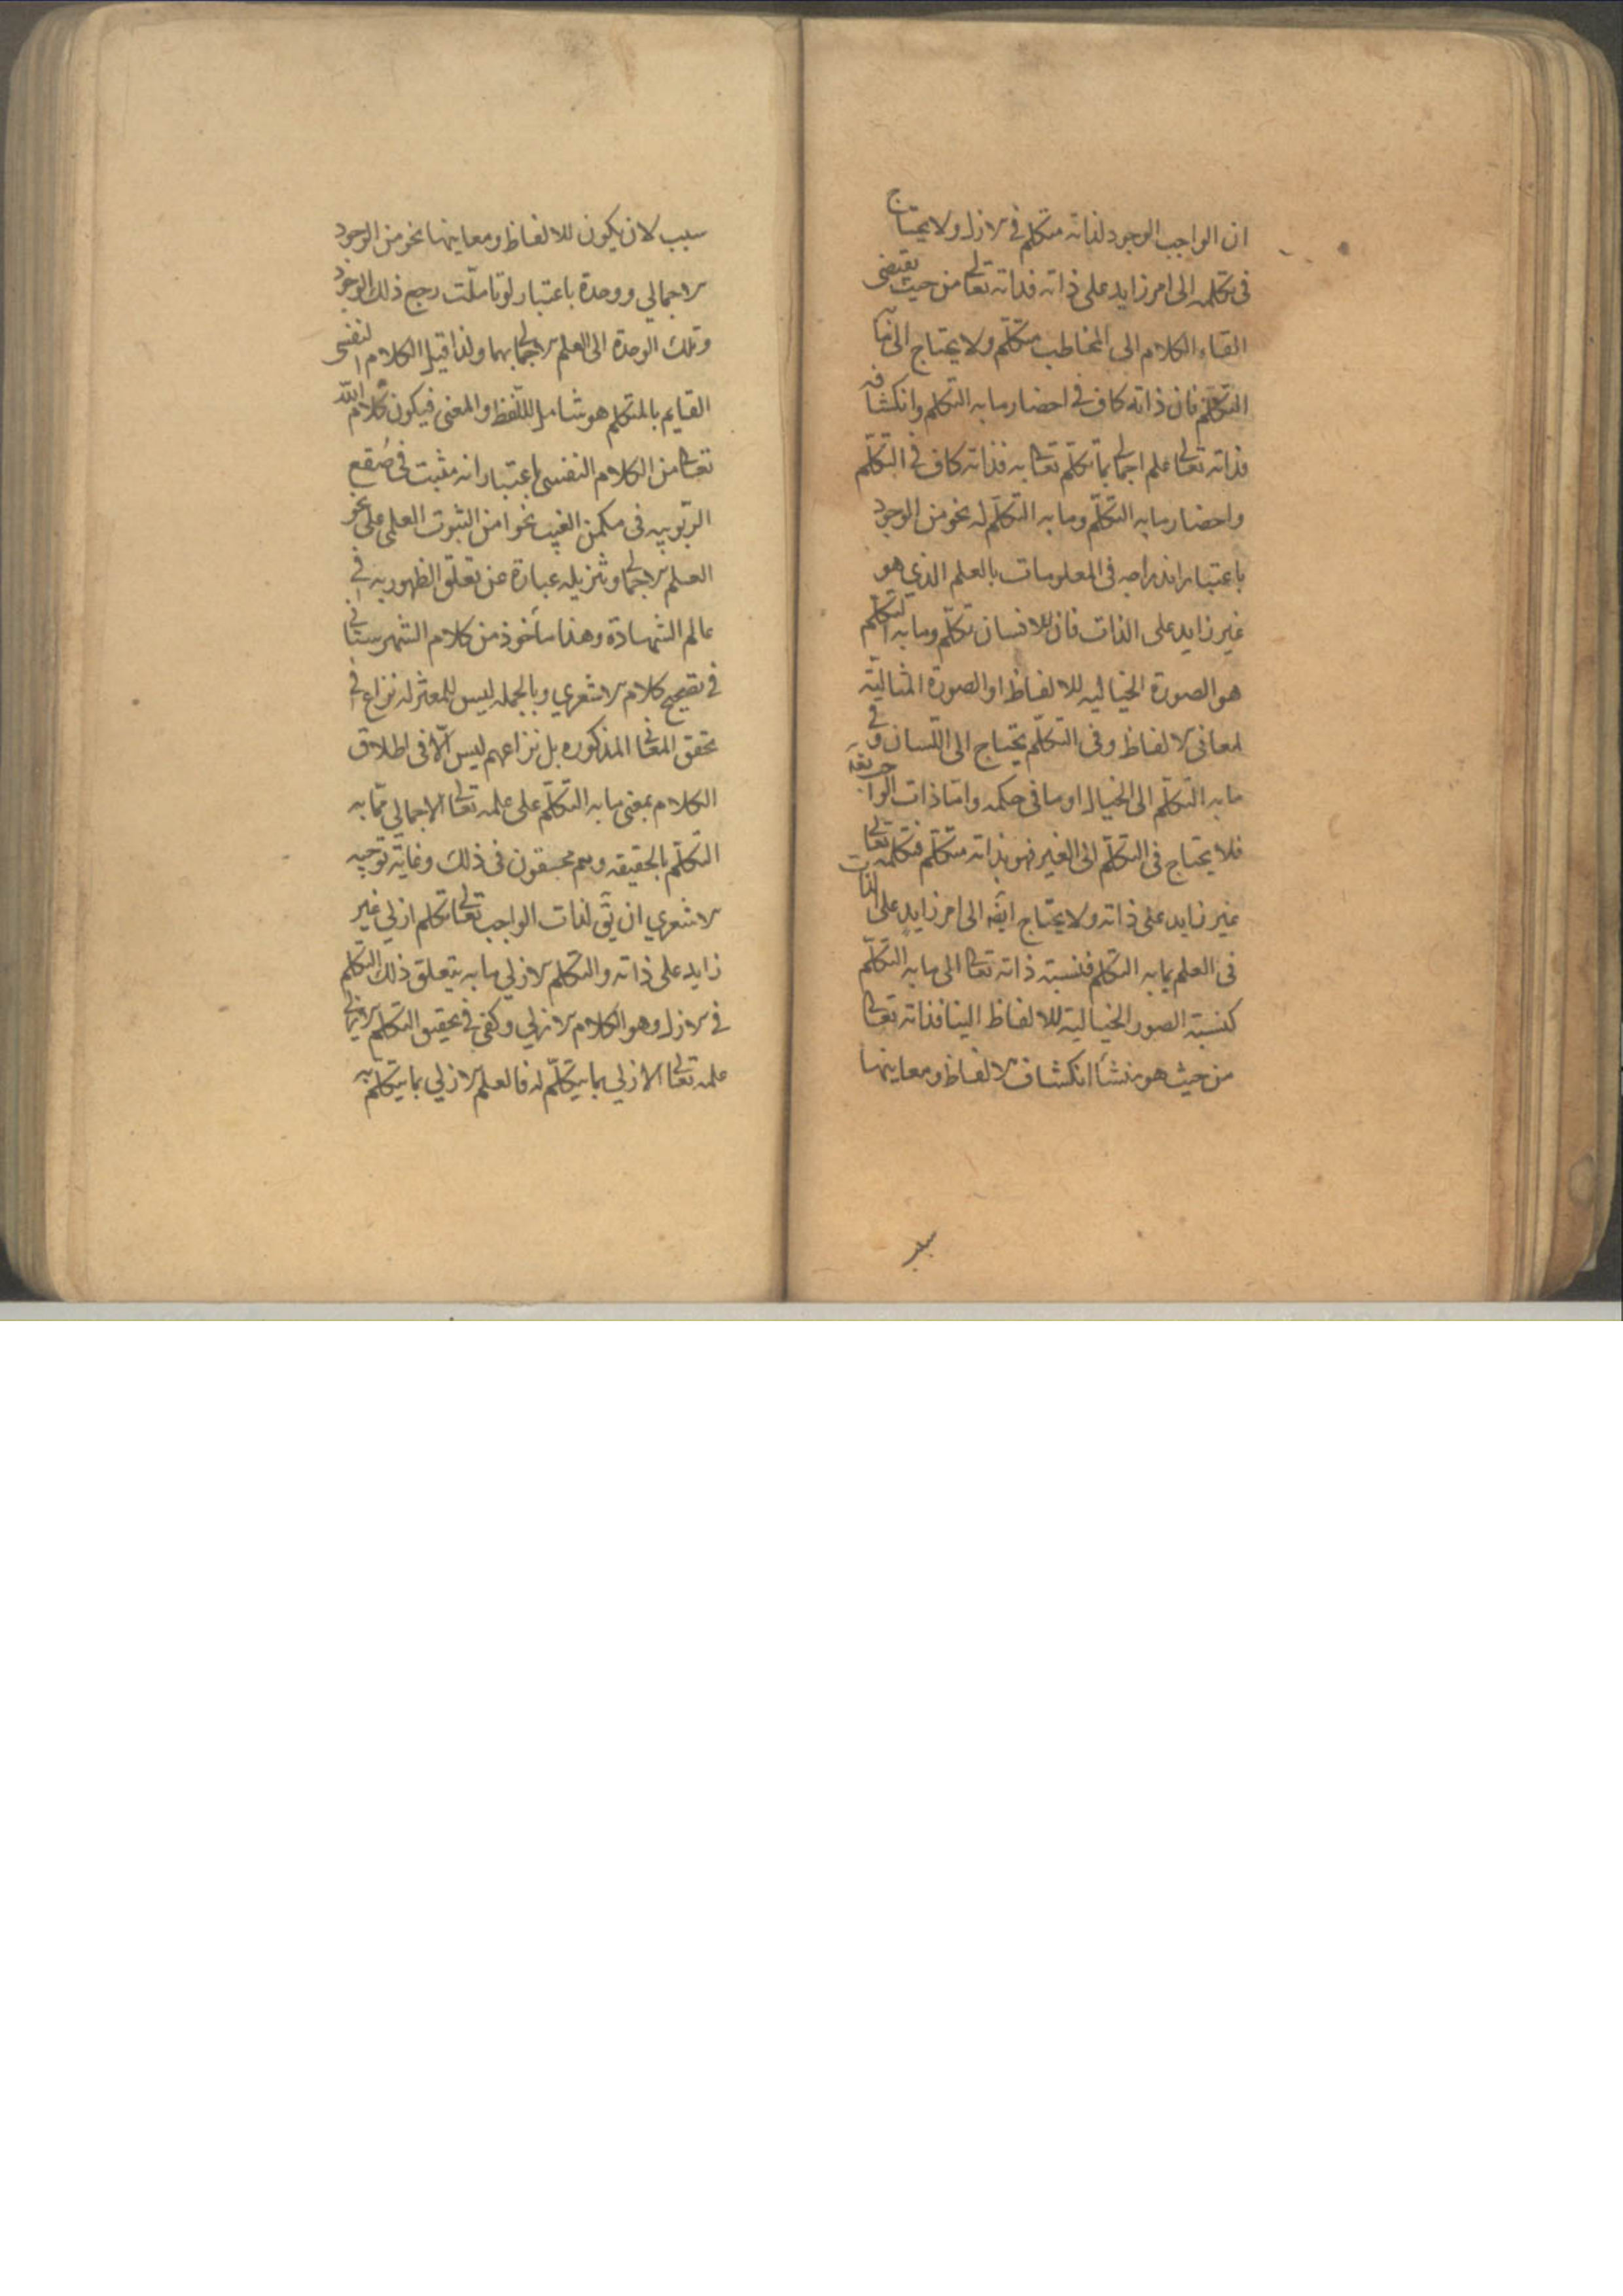 ان الواجب الوجود لذاته متكلم في الازل ولا يحتاج
في تكلمه الى امر زايد على ذاته فذاته تعالى من حيث يقتضى
القاء الكلام الى المخاطب متكلّم ولا يحتاج الى
التكلّم فان ذاته كاف في احضار ما به التكلم وانكشافه
فذاته تعالى علم اجمالى بما تكلّم تعالى به فذاته كاف في التكلّم
واحضار ما به التكلّم وما به التكلّم له نحو من الوجود
باعتبار اندراجه في المعلومات بالعلم الذي هو
غير زايد على الذات فان للانسان تكلّم وما به التكلّم
هو الصورة الخياليه للالفاظ او الصورة المثاليّة
لمعانى الالفاظ وفى التكلّم يحتاج الى اللّسان وفي
ما به التكلّم الى الخيال او ما في حكمه وامّا ذات الواجب
فلا يحتاج في التكلّم الى الغير فهو بذاته متكلّم فتكلّمه تعالى
غير زايد على ذاته ولا يحتاج ايضه الى امر زايد على الذات
في العلم بما به التكلم فنسبة ذاته تعالى الى ما به التكلّم
كنسبة الصور الخياليّة للالفاظ الينا فذاته تعالى
من حيث هو منشأ انكشاف الالفاظ ومعاينها
سبب
سبب لان يكون للالفاظ ومعاينها نحو من الوجود
الاجمالي ووحدة باعتبار لو تاملّت رجع ذلك الوجود
وتلك الوحدة الى العلم الاجمالى بهما ولذا قيل الكلام النفسى
القايم بالمتكلم هو شامل لللّفظ والمعنى فيكون كلام اللّه
تعالى من الكلام النفسى باعتبار انه مثبت في صُقع
الرّبوبيه في مكمن الغيب نحوا من الثبوت العلمى على نحو
العلم الاجمالى وتنزيله عبارة عن تعلق الظهور به في
عالم الشهادة وهذا مأخوذ من كلام الشهرستانى
في تصحيح كلام الاشعري وبالجمله ليس للمعتزله نزاع في
تحقق المعانى المذكوره بل نزاعهم ليس الّا فى اطلاق
الكلام بمعنى ما به التكلّم على علمه تعالى الاجمالي بما به
التكلّم بالحقيقه وهم محقون في ذلك وغاية توجيه
الاشعري ان يق لذات الواجب تعالى تكلم ازلي غير
زايد على ذاته والتكلم الازلي ما به يتعلق ذلك التكلم
في الازل وهو الكلام الازلي وكفى في تحقيق التكلم الازلى
علمه تعالى الازلي بما يتكلّم له فالعلم الازلي بما يتكلّم به